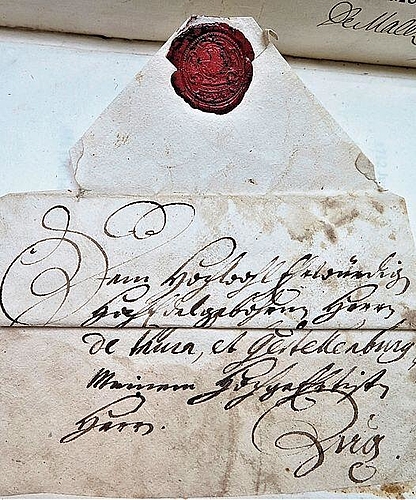 de Malb
Dem Hochwohl Ehrwürdig
Hoch Edelgebohrnen Herrn
de Mura, et Gestellenburg,
Meinem Hochgeehrtist.
Herrn.
Zug.